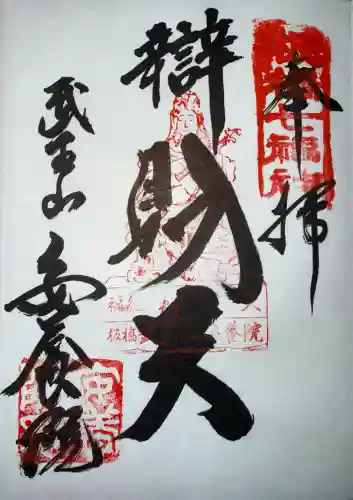 奉拝
辯財天
武王山
安養院
七福神
板橋
安養院